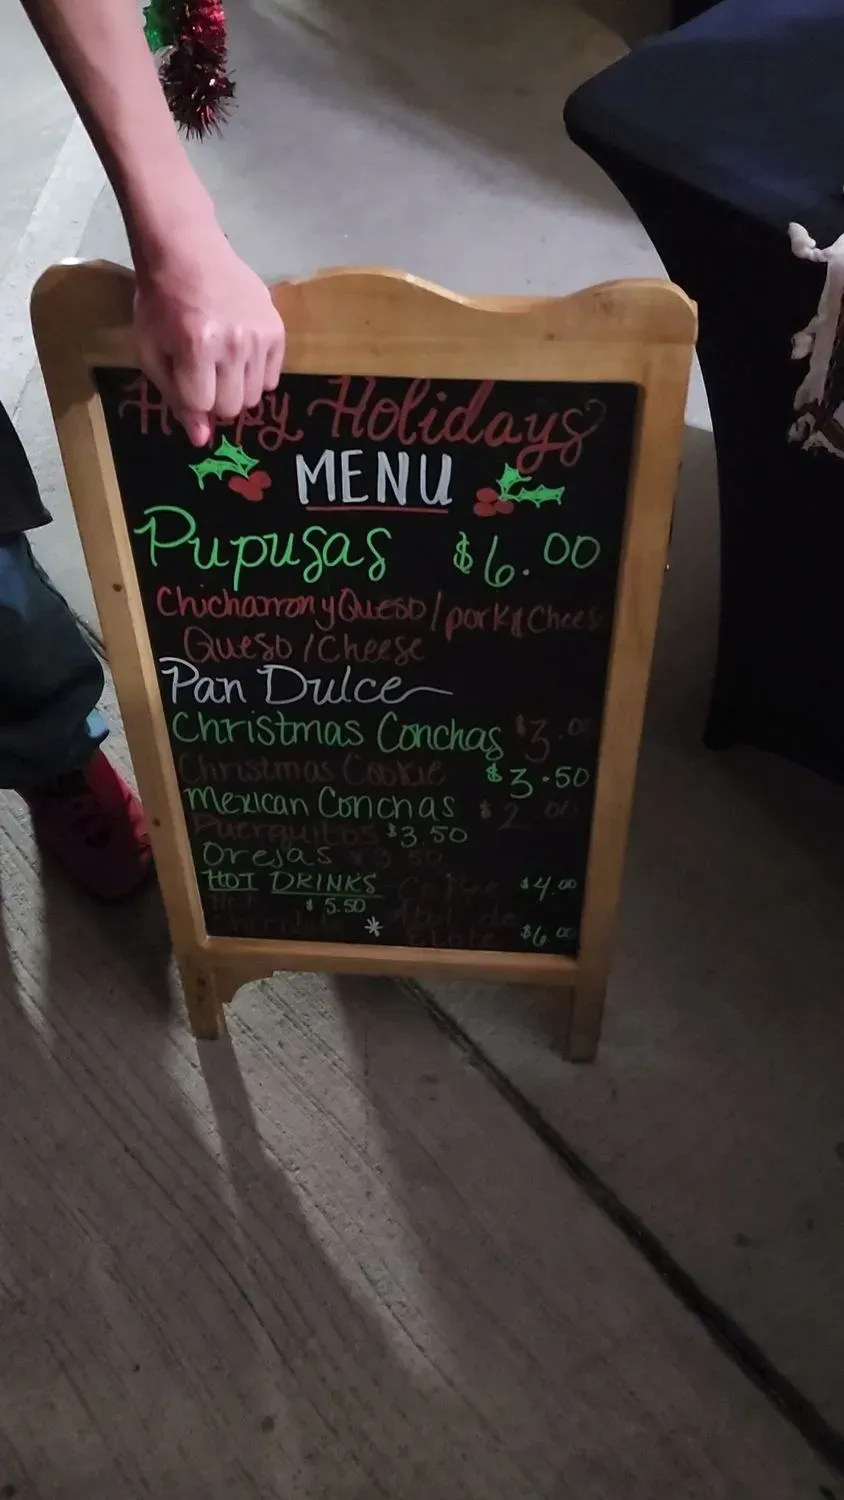 Happy Holidays
MENU
Pupusas $6.00
Chicharron y Queso/pork & Cheese
Queso/Cheese
Pan Dulce
Christmas Conchas $3.00
Christmas Cookie $3.50
Mexican Conchas $2.00
Puerquitos $3.50
Orejas $3.50
HOT DRINKS Coffee $4.00
Hot $5.50
* Elote $6.00